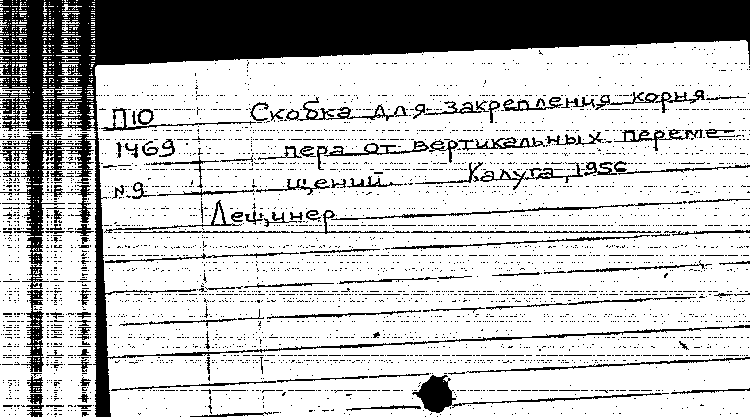 П10 Скобка для закрепления корня
1469 пера от вертикальных переме-
№9 щений. Калуга, 1956
Лещинер